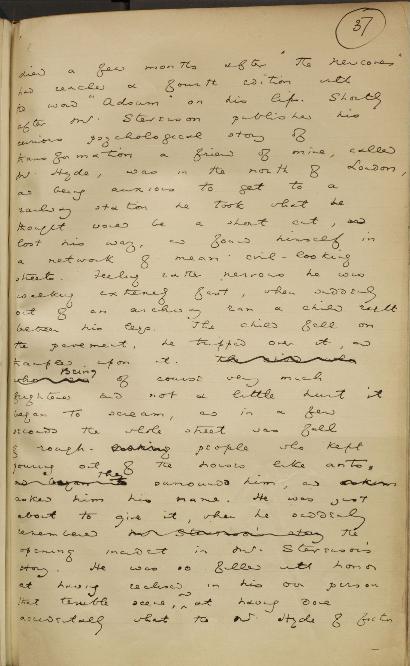 37
died a few months after "The Newcomes"
had reached a fourth edition with
the word "Adsum" on his lips. Shortly
after Mr. Stevenson published his
curious psychological story of
transformation a friend of mine, called
Mr. Hyde, was in the north of London,
and being anxious to get to a
railway station he took what he
thought would be a short cut, and
lost his way, and found himself in
a network of mean evil-looking
streets. Feeling rather nervous he was
walking extremely fast, when suddenly
out of an archway ran a child right
between his legs. The child fell on
the pavement, he tripped over it, and
trampled upon it.
Being
of course very much
frightened and not a little hurt it
began to scream, and in a few
seconds the whole street was full
of rough people who kept
pouring out of the houses like ants.
They
surrounded him, and
asked him his name. He was just
about to give it, when he suddenly
remembered Mr. Stevenson's story the
opening incident in Mr. Stevenson's
story. He was so filled with horror
at having realised in his own person
that terrible scene, at having done
accidentally what the Mr. Hyde of fiction